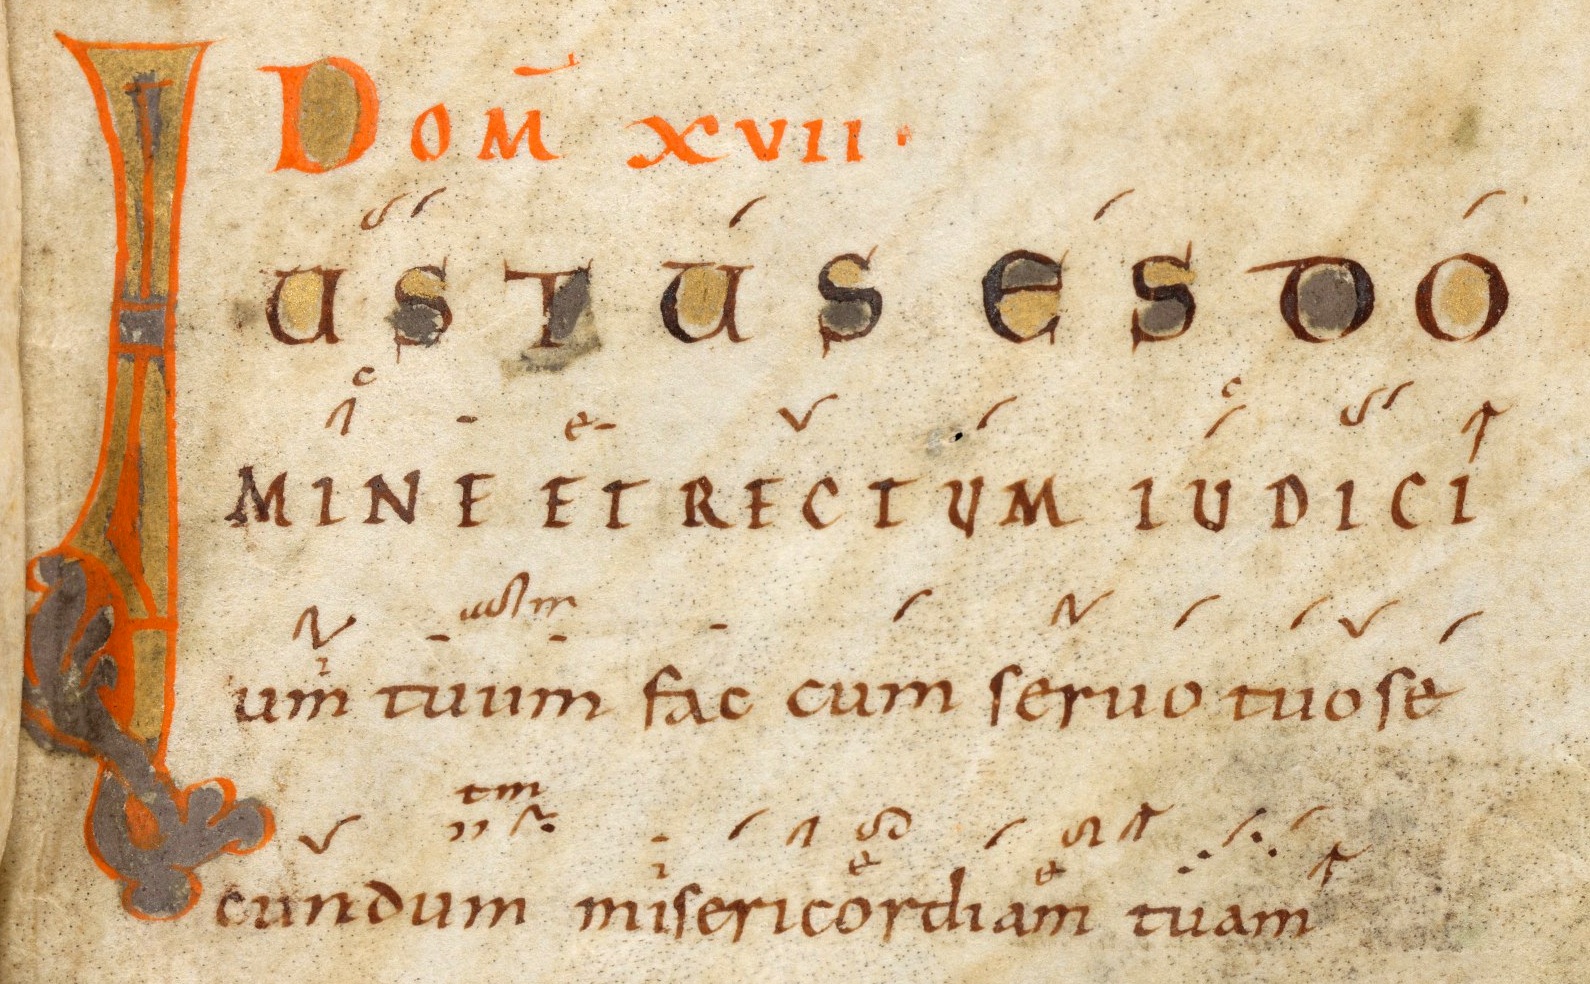 Dom̄ XVII·
IUSTUS ES DO
MINE ET RECTUM IUDICI
um tuum fac cum seruo tuo se
cundum misericordiam tuam